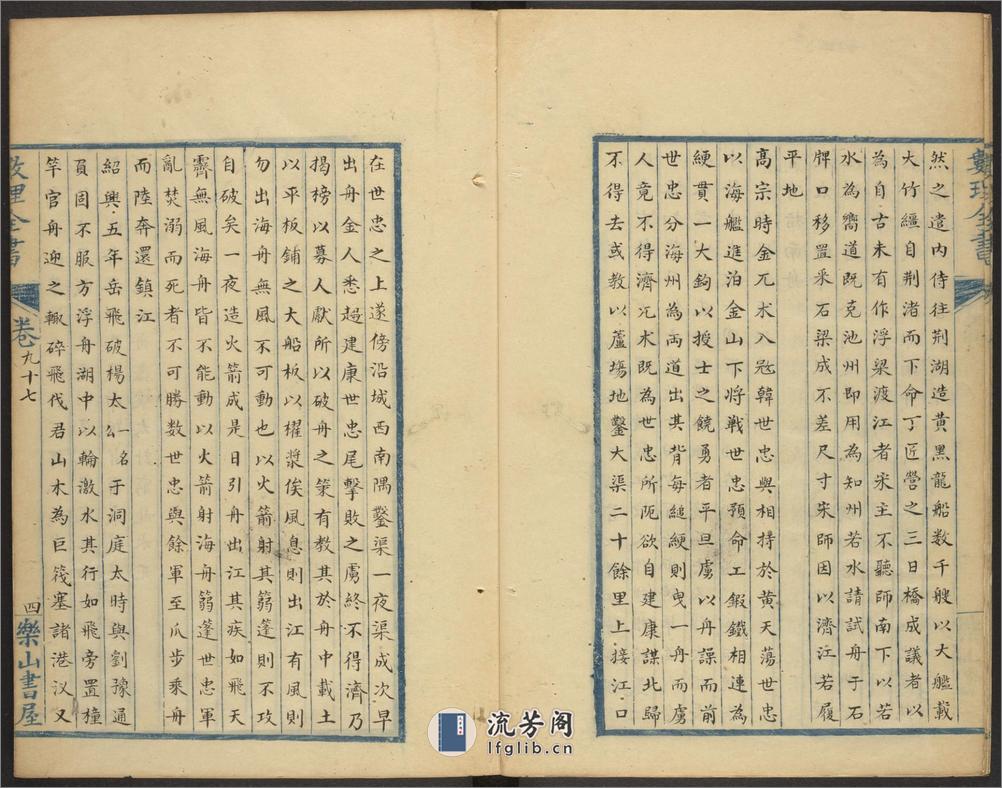 數理全書
然之遣内侍往荆湖造黄黑龍船数千艘以大艦載
大竹纜自荆渚而下命丁匠營之三日橋成議者以
為自古未有作浮梁渡江者宋主不聽師南下以若
水為嚮道既克池州即用為知州若水請試舟于石
牌口移置采石梁成不差尺寸宋師因以濟江若履
平地
高宗時金兀术入冦韓世忠與相持於黄天蕩世忠
以海艦進泊金山下将戦世忠預命工鍛鐵相連為
綆貫一大鈎以授士之饒勇者平旦虜以舟譟而前
世忠分海州為兩道出其背每縋綆則曵一舟而虜
人竟不得濟兀术既為世忠所阨欲自建康謀北歸
不得去或教以蘆塲地鑿大渠二十餘里上接江口
在世忠之上遂傍沿城西南隅鑿渠一夜渠成次早
出舟金人悉趨建康世忠尾擊敗之虜終不得濟乃
揭榜以募人獻所以破舟之策有教其於舟中載土
以平板鋪之大船板以櫂槳俟風息則出江有風則
勿出海舟無風不可動也以火箭射其篛篷則不攻
自破矣一夜造火箭成是日引舟出江其疾如飛天
霽無風海舟皆不能動以火箭射海舟篛蓬世忠軍
亂焚溺而死者不可勝数世忠與餘軍至瓜步棄舟
而陸奔還鎮江
紹興五年岳飛破楊太一名么于洞庭太時與劉豫通
負固不服方浮舟湖中以輪激水其行如飛旁置橦
竿官舟迎之輒碎飛伐君山木為巨筏塞諸港汊又
數理全書
卷九十七
四
樂山書屋
流芳阁
lfglib.cn